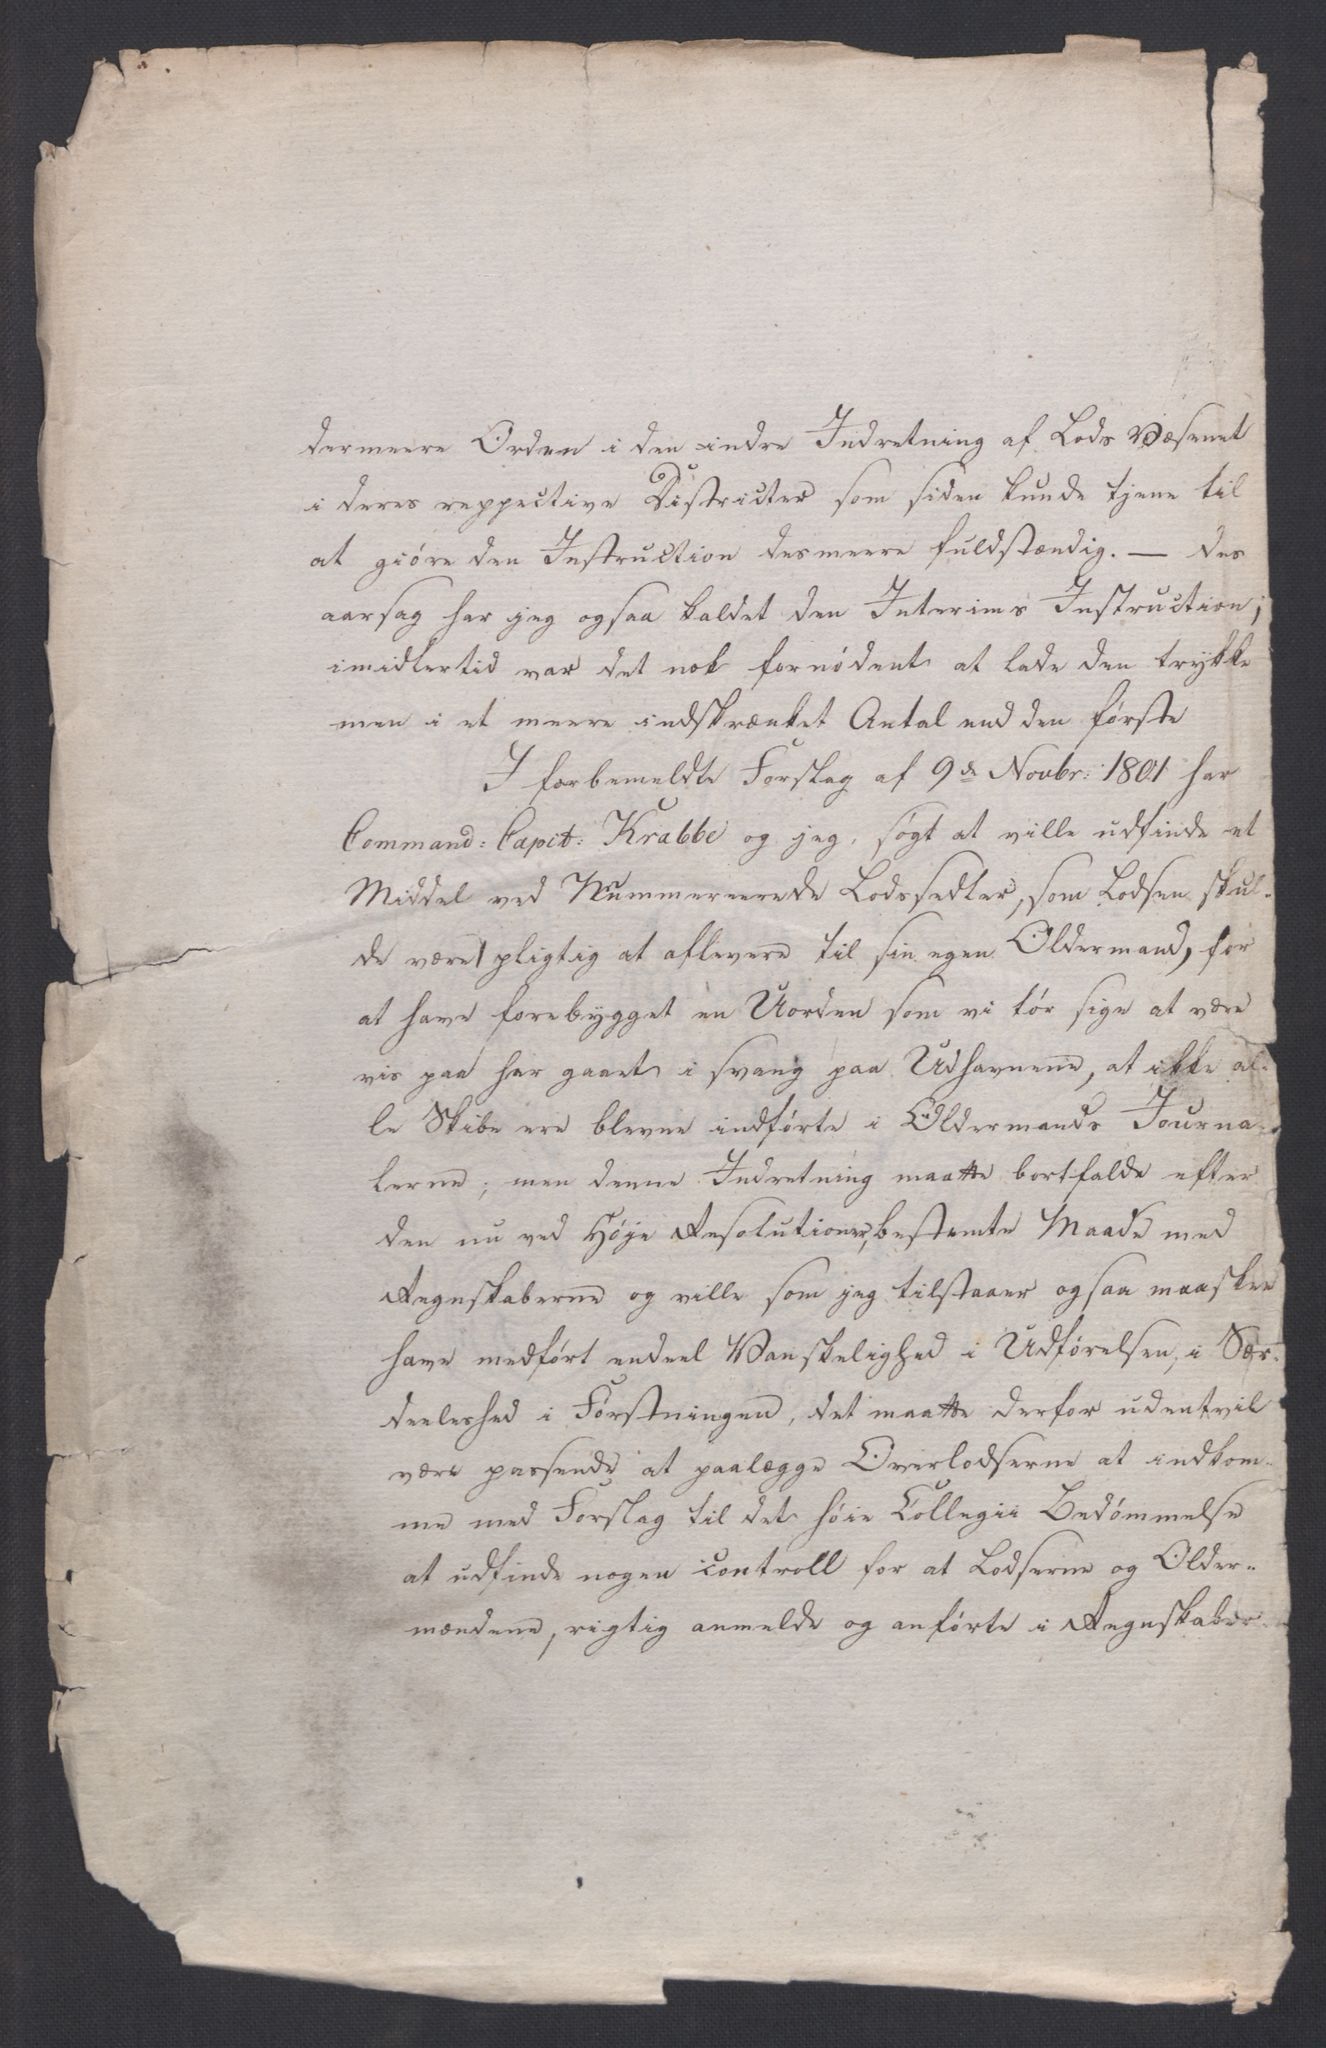 dermeere Orden i den indre Indretning af Lods Væsenet
i deres reppective Districter som siden kunde tjene til
at giöre den Instruction desmeere fuldstændig. — des
aarsag har jeg ogsaa kaldet den Interims Instruction;
imidlertid var det nok fornödent at lade den trykke
men i et meere indskrænket Antal end den förste
I forbemeldte Forslag af 9de Novbr: 1801 har
Command: Capit: Krabbe og jeg, søgt at ville udfinde et
Middel ved Nummereerede Lodssedler, som Lodsen skul-
de være pligtig at aflevere til sin egen Oldermand, for
at have forebygget en Uorden som vi tör sige at være
vis paa har gaaet i svang paa Udhavnene, at ikke al-
le Skibe ere blevne indførte i Oldermands Journa-
lerne; men denne Indretning maatte bortfalde efter
den nu ved Høje Resolutioner, bestemte Maade med
Regnskaberne og ville som jeg tilstaaer ogsaa maaskee
have medført endeel Vanskelighed i Udførelsen, i Sær-
deeleshed i Förstningen, det maatte derfor udentvil
være passende at paalægge Overlodserne at indkom-
me med Forslag til det høie Collegii Bedømmelse
at udfinde nogen controll for at Lodserne og Older-
mændene, rigtig anmelde og anførte i Regnskaber-